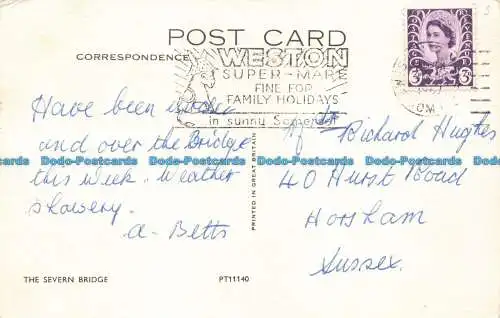 POST CARD
CORRESPONDENCE
WESTON
SUPER-MARE
FINE FOR
FAMILY HOLIDAYS
in sunny Somerset
3D 3D
Have been under
and over the Bridge
this week. Weather
showery.
A. Betts
Richard Hughes
40 Hurst Road
Horsham
Sussex.
PRINTED IN GREAT BRITAIN
THE SEVERN BRIDGE
PT11140
Dodo-Postcards Dodo-Postcards Dodo-Postcards Dodo-Postcards Dodo-Postcards